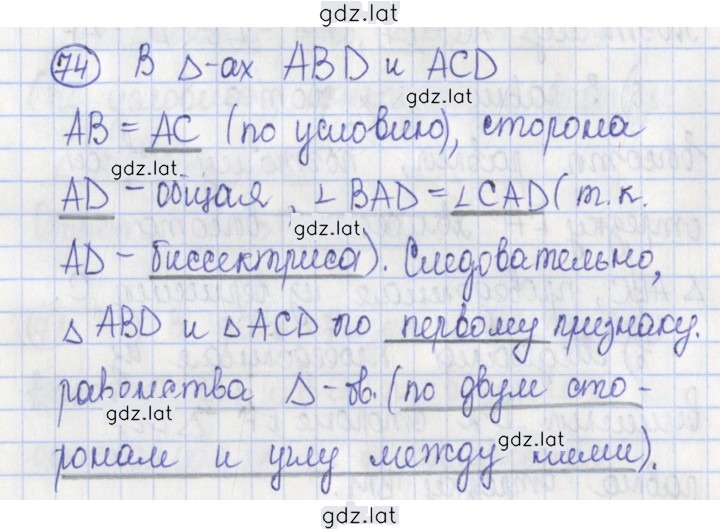 gdz.lat
74 В Δ-ах ABD и ACD
gdz.lat
AB = AC (по условию), сторона
gdz.lat
AD - общая, ∠ BAD = ∠CAD (т.к.
gdz.lat
AD - биссектриса). Следовательно,
gdz.lat
Δ ABD и Δ ACD по первому признаку.
gdz.lat
равенства Δ-ов. (по двум сто-
gdz.lat
gdz.lat
ронам и углу между ними).
gdz.lat